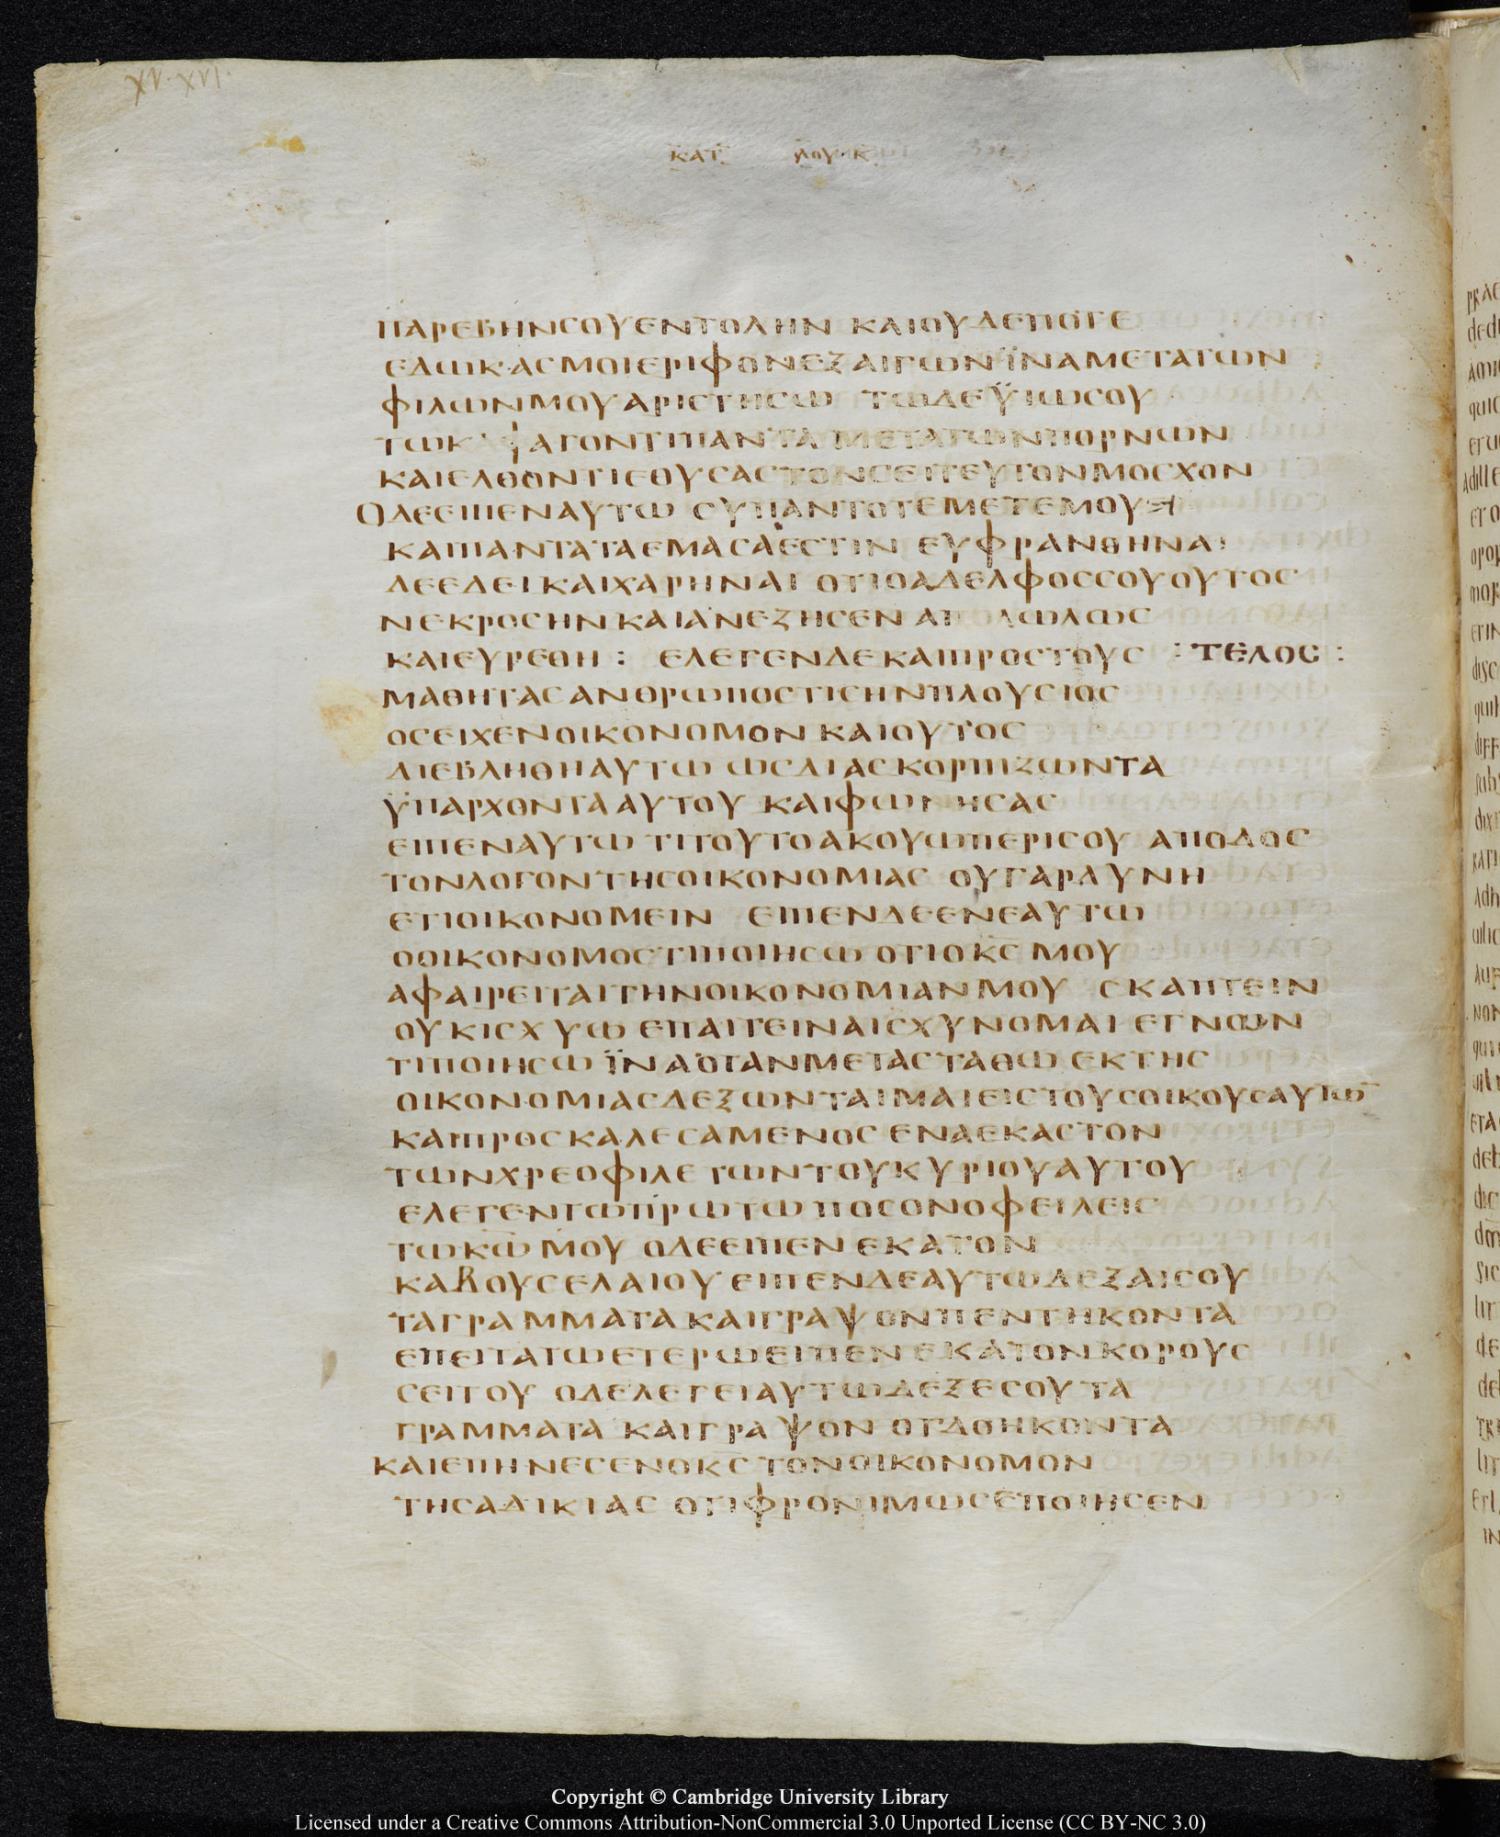 XV·XVI·
ΚΑΤ ΛΟΥΚ
ΠΑΡΕΒΗΝСΟΥΕΝΤΟΛΗΝ ΚΑΙΟΥΔΕΠΟΤΕ
ΕΔΩΚΑСΜΟΙΕΡΙΦΟΝΕΞΑΙΓΩΝΪΝΑΜΕΤΑΤΩΝ
ΦΙΛΩΝΜΟΥΑΡΙСΤΗСΩ ΤΩΔΕΫΙΩСΟΥ
ΑΓΟΝΤΙΠΑΝΤΑ ΜΕΤΑΤΩΝΠΟΡΝΩΝ
ΚΑΙΕΛΘΟΝΤΙΕΘΥСΑСΤΟΝСΕΙΤΕΥΤΟΝΜΟСΧΟΝ
ΟΔΕΕΙΠΕΝΑΥΤΩ СΥΠΑΝΤΟΤΕΜΕΤΕΜΟΥ
ΚΑΙΠΑΝΤΑΤΑΕΜΑСΑΕСΤΙΝ ΕΥΦΡΑΝΘΗΝΑΙ
ΔΕΕΔΕΙΚΑΙΧΑΡΗΝΑΙ ΟΤΙΟΑΔΕΛΦΟССΟΥΟΥΤΟС
ΝΕΚΡΟСΗΝΚΑΙΑΝΕΖΗСΕΝ ΑΠΟΛΩΛΩС
ΚΑΙΕΥΡΕΘΗ : ΕΛΕΓΕΝΔΕΚΑΙΠΡΟСΤΟΥС : ΤΕΛΟС :
ΜΑΘΗΤΑСΑΝΘΡΩΠΟСΤΙСΗΝΠΛΟΥСΙΟС
ΟСΕΙΧΕΝΟΙΚΟΝΟΜΟΝ ΚΑΙΟΥΤΟС
ΔΙΕΒΛΗΘΗΑΥΤΩ ΩСΔΙΑСΚΟΡΠΙΖΩΝΤΑ
ΫΠΑΡΧΟΝΤΑΑΥΤΟΥ ΚΑΙΦΩΝΗСΑС
ΕΙΠΕΝΑΥΤΩ ΤΙΤΟΥΤΟΑΚΟΥΩΠΕΡΙСΟΥ ΑΠΟΔΟС
ΤΟΝΛΟΓΟΝΤΗСΟΙΚΟΝΟΜΙΑС ΟΥΓΑΡΔΥΝΗ
ΕΤΙΟΙΚΟΝΟΜΕΙΝ ΕΙΠΕΝΔΕΕΝΕΑΥΤΩ
ΟΟΙΚΟΝΟΜΟСΤΙΠΟΙΗСΩ ΟΤΙΟΚ̅С̅ ΜΟΥ
ΑΦΑΙΡΕΙΤΑΙΤΗΝΟΙΚΟΝΟΜΙΑΝΜΟΥ СΚΑΠΤΕΙΝ
ΟΥΚΙСΧΥΩ ΕΠΑΙΤΕΙΝΑΙСΧΥΝΟΜΑΙ ΕΓΝΩΝ
ΤΙΠΟΙΗСΩ ΪΝΑΟΤΑΝΜΕΤΑСΤΑΘΩ ΕΚΤΗС
ΟΙΚΟΝΟΜΙΑСΔΕΞΩΝΤΑΙΜΑΙΕΙСΤΟΥСΟΙΚΟΥСΑΥΤΩ̅
ΚΑΙΠΡΟСΚΑΛΕСΑΜΕΝΟС ΕΝΑΕΚΑСΤΟΝ
ΤΩΝΧΡΕΟΦΙΛΕΤΩΝΤΟΥΚΥΡΙΟΥΑΥΤΟΥ
ΕΛΕΓΕΝΤΩΠΡΩΤΩ ΠΟСΟΝΟΦΕΙΛΕΙС
ΤΩΚ̅Ω̅ ΜΟΥ ΟΔΕΕΙΠΕΝ ΕΚΑΤΟΝ
ΚΑΔΟΥСΕΛΑΙΟΥ ΕΙΠΕΝΔΕΑΥΤΩΔΕΞΑΙСΟΥ
ΤΑΓΡΑΜΜΑΤΑΚΑΙΓΡΑΨΟΝΠΕΝΤΗΚΟΝΤΑ
ΕΠΕΙΤΑΤΩΕΤΕΡΩΕΙΠΕΝ ΕΚΑΤΟΝΚΟΡΟΥС
СΕΙΤΟΥ ΟΔΕΛΕΓΕΙΑΥΤΩΔΕΞΕСΟΥΤΑ
ΓΡΑΜΜΑΤΑ ΚΑΙΓΡΑΨΟΝ ΟΓΔΟΗΚΟΝΤΑ
ΚΑΙΕΠΗΝΕСΕΝΟΚ̅С̅ ΤΟΝΟΙΚΟΝΟΜΟΝ
ΤΗСΑΔΙΚΙΑС ΟΤΙΦΡΟΝΙΜΩСΕΠΟΙΗСΕΝ
Copyright © Cambridge University Library
Licensed under a Creative Commons Attribution-NonCommercial 3.0 Unported License (CC BY-NC 3.0)